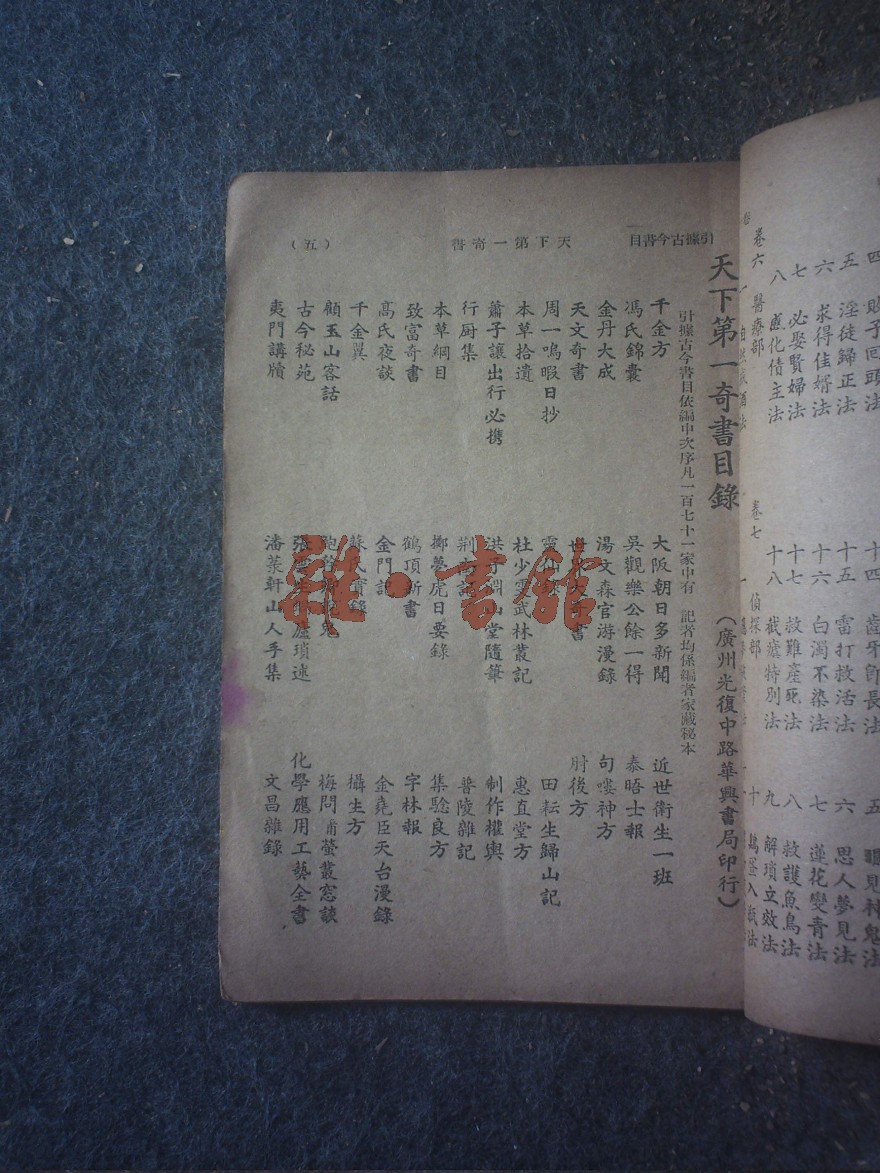 引據古今書目
天下第一奇書
（五）
天下第一奇書目錄
（廣州光復中路華興書局印行）
引據古今書目依編中次序凡一百七十一家中有 記者均係編者家藏秘本
千金方
大阪朝日多新聞
近世衛生一班
馮氏錦囊
吳觀樂公餘一得
泰晤士報
金丹大成
湯文森官游漫錄
句嘍神方
天文奇書
世界大奇書
肘後方
周一鳴暇日抄
田耘生歸山記
本草拾遺
杜少雲武林叢記
惠直堂方
蕭子讓出行必携
洪子淵山堂隨筆
制作權輿
行厨集
普陵雜記
本草綱目
擲夢虎日要錄
集驗良方
致富奇書
鶴頂新書
字林報
高氏夜談
金門記
金堯臣天台漫錄
千金翼
攝生方
顧玉山客話
梅問甫螢叢窓談
古今秘苑
化學應用工藝全書
夷門講牘
潘菉軒山人手集
文昌雜錄
回頭法
五 淫徒歸正法
六 求得佳婿法
七 必娶賢婦法
八 感化債主法
卷六 醫療部
十五 雷打救活法
十六 白濁不染法
十七 救難産死法
十八 截瘧特別法
卷七 偵探部
六 思人夢見法
七 蓮花變青法
八 救護魚鳥法
九 解瑣立效法
雜·書館